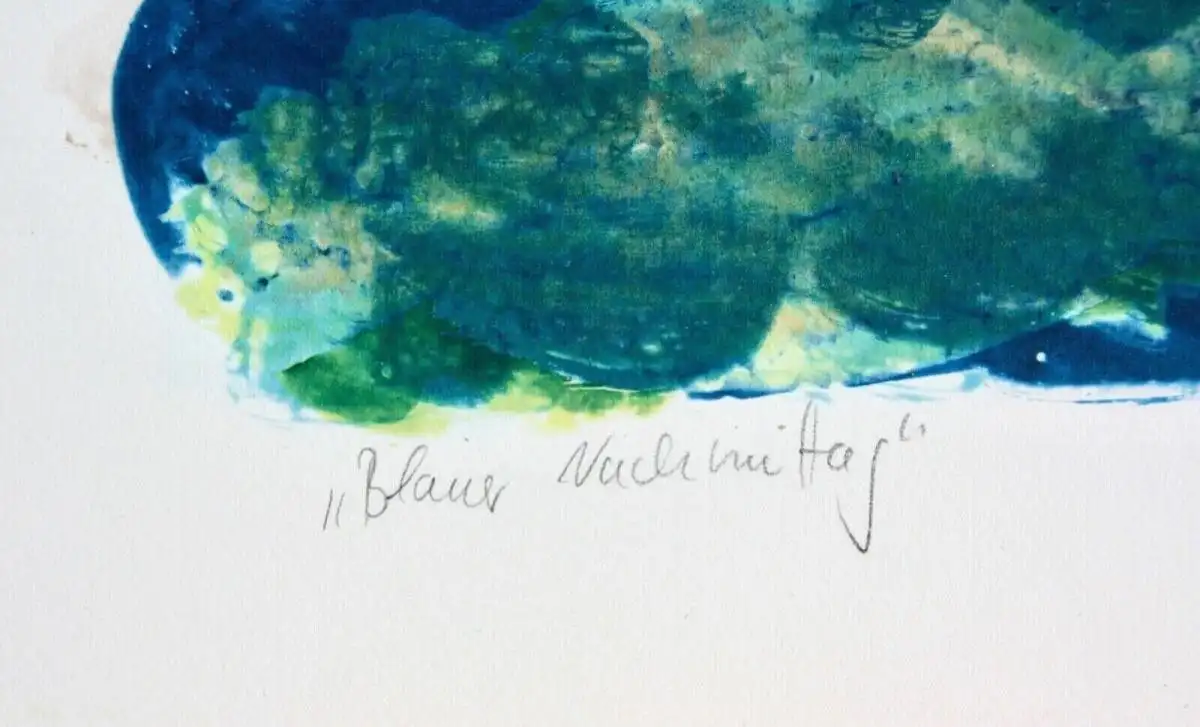 „Blauer Nachmittag“